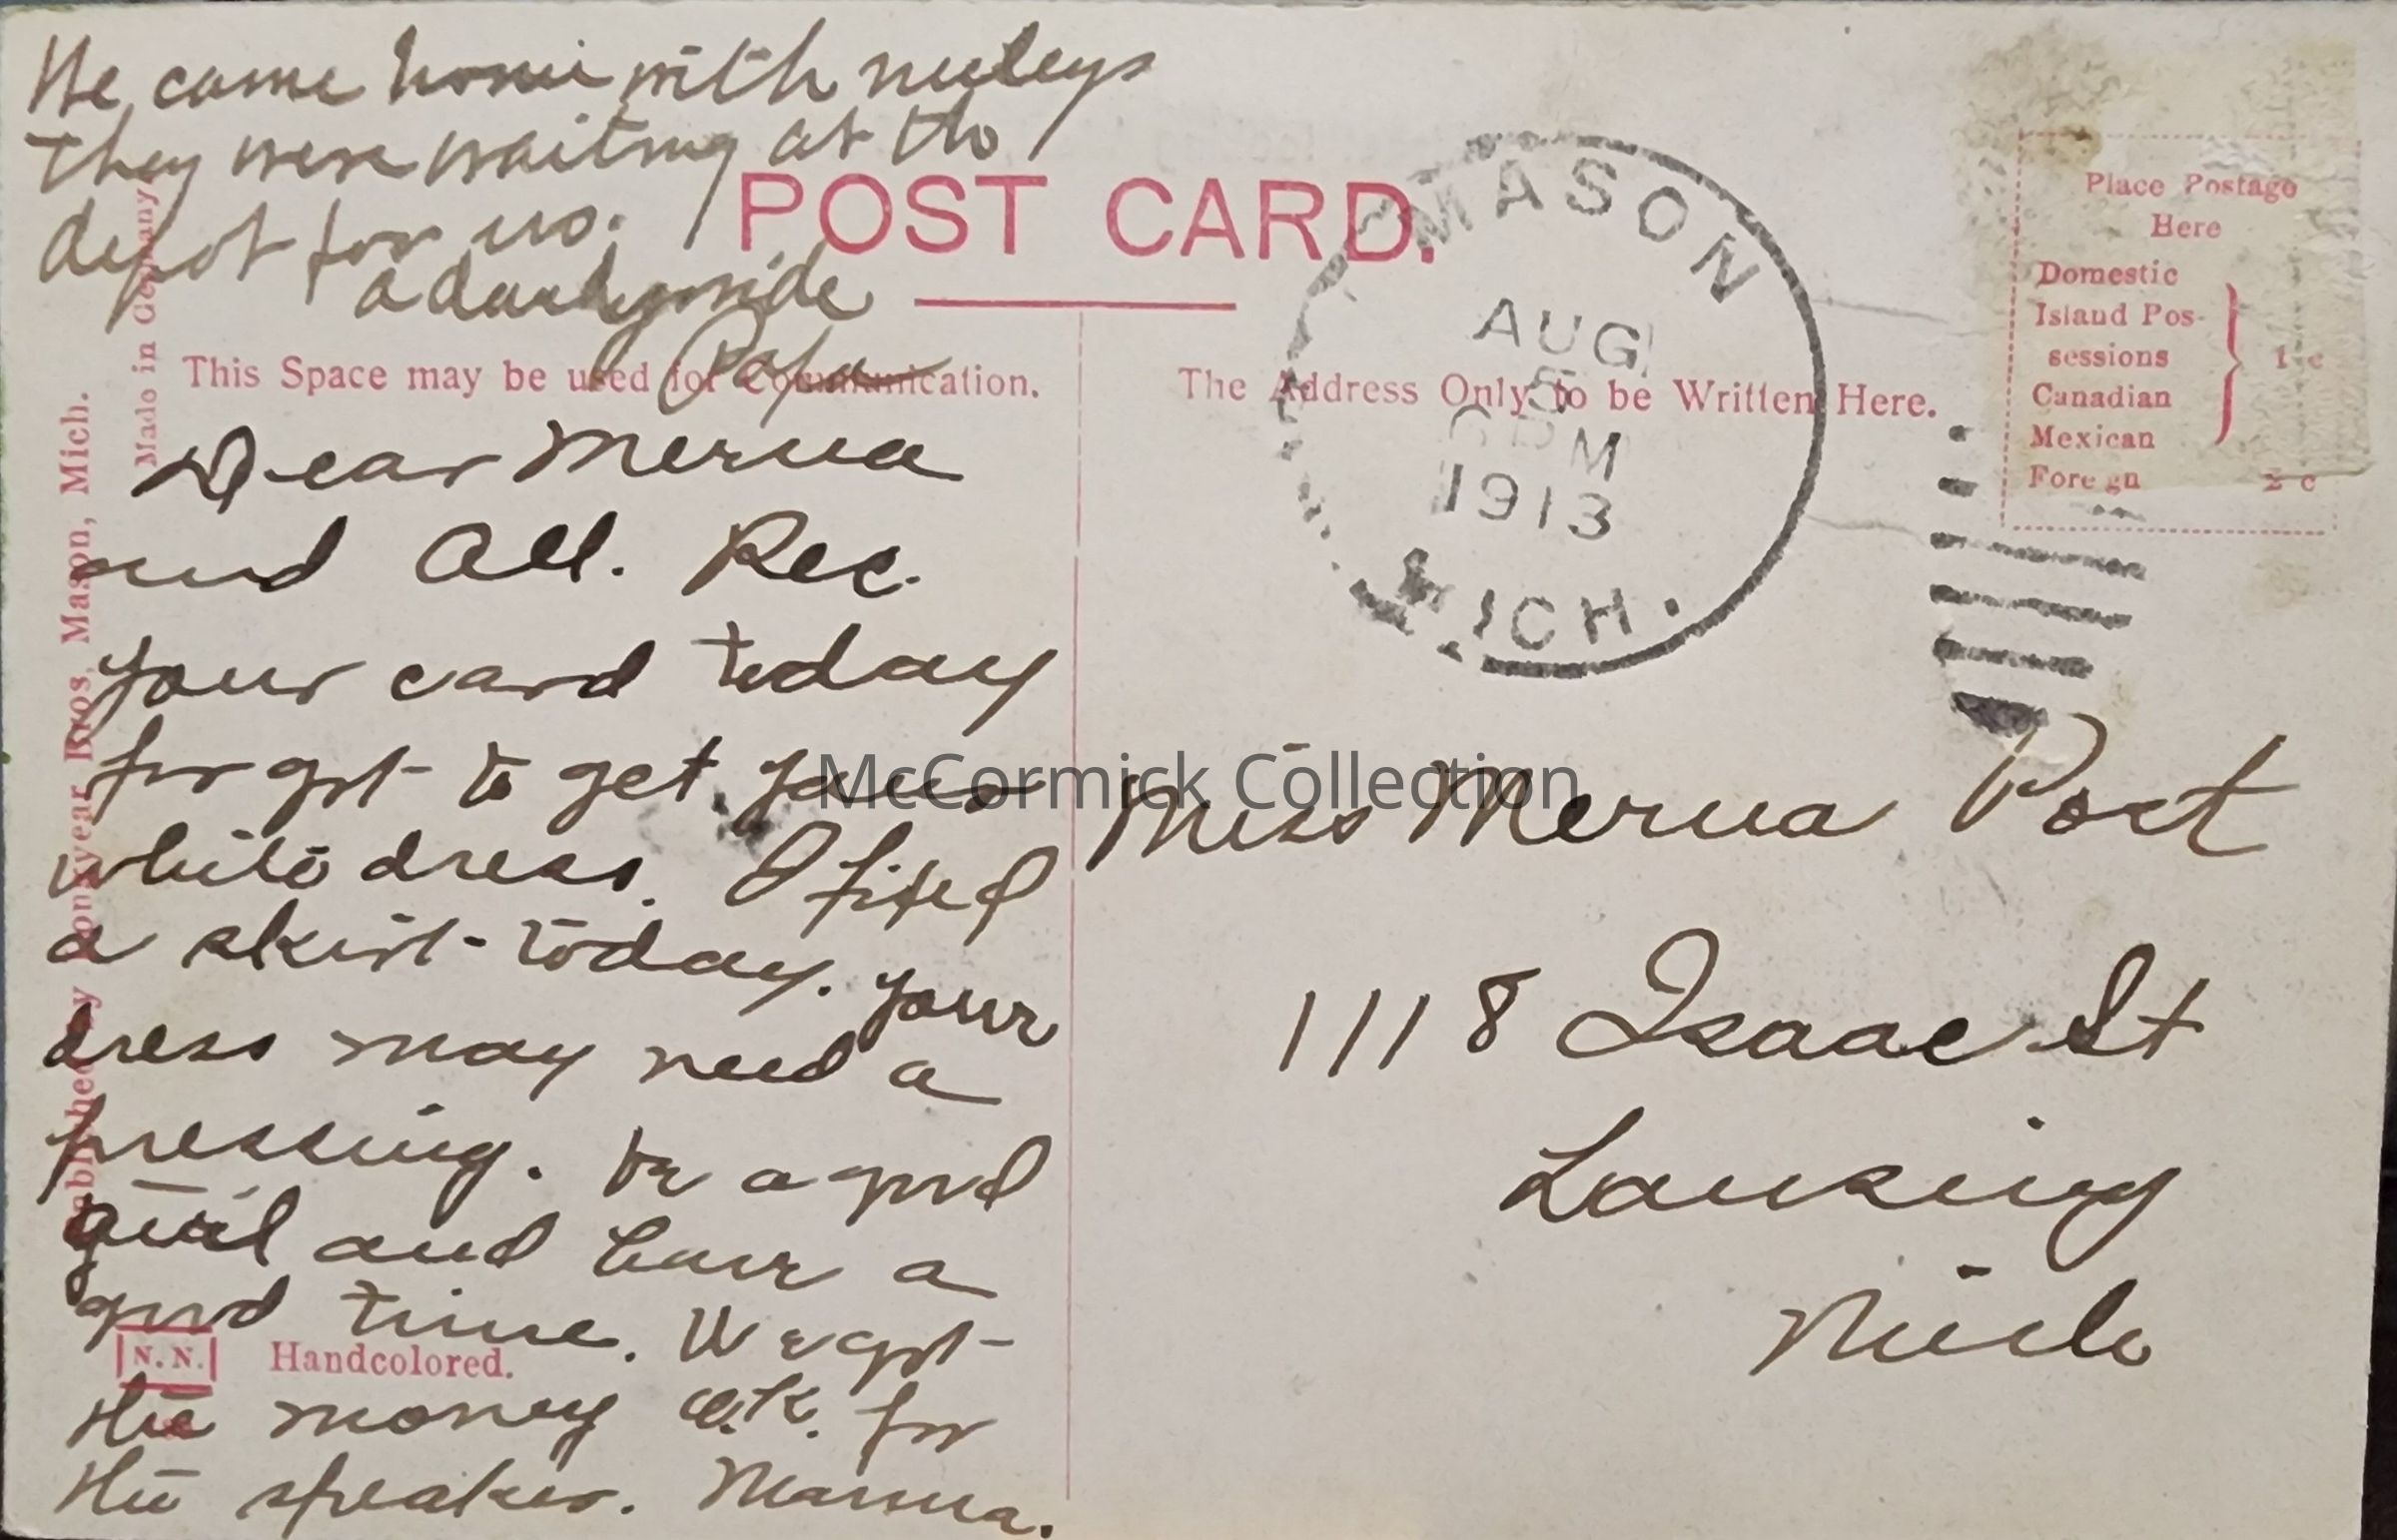 We came home with
They were waiting at the
depot for us.
a dandy ride
Papa
POST CARD.
This Space may be used for Communication.
The Address Only to be Written Here.
Place Postage
Here
Domestic
Island Pos-
sessions
Canadian
Mexican
1 c
Foreign
2 c
MASON
AUG
5
6 PM
1913
MICH.
Dear Merna
and All. Rec.
your card today
forgot to get your
white dress. I fixed
a skirt today. your
dress may need a
pressing. be a good
girl and have a
good time. We got
the money O.K. for
the speaker. Mamma.
Miss Merna Post
1118 Isaac St
Lansing
Mich
Made in Germany.
Published by Longyear Bros. Mason, Mich.
N. N.
Handcolored.
McCormick Collection